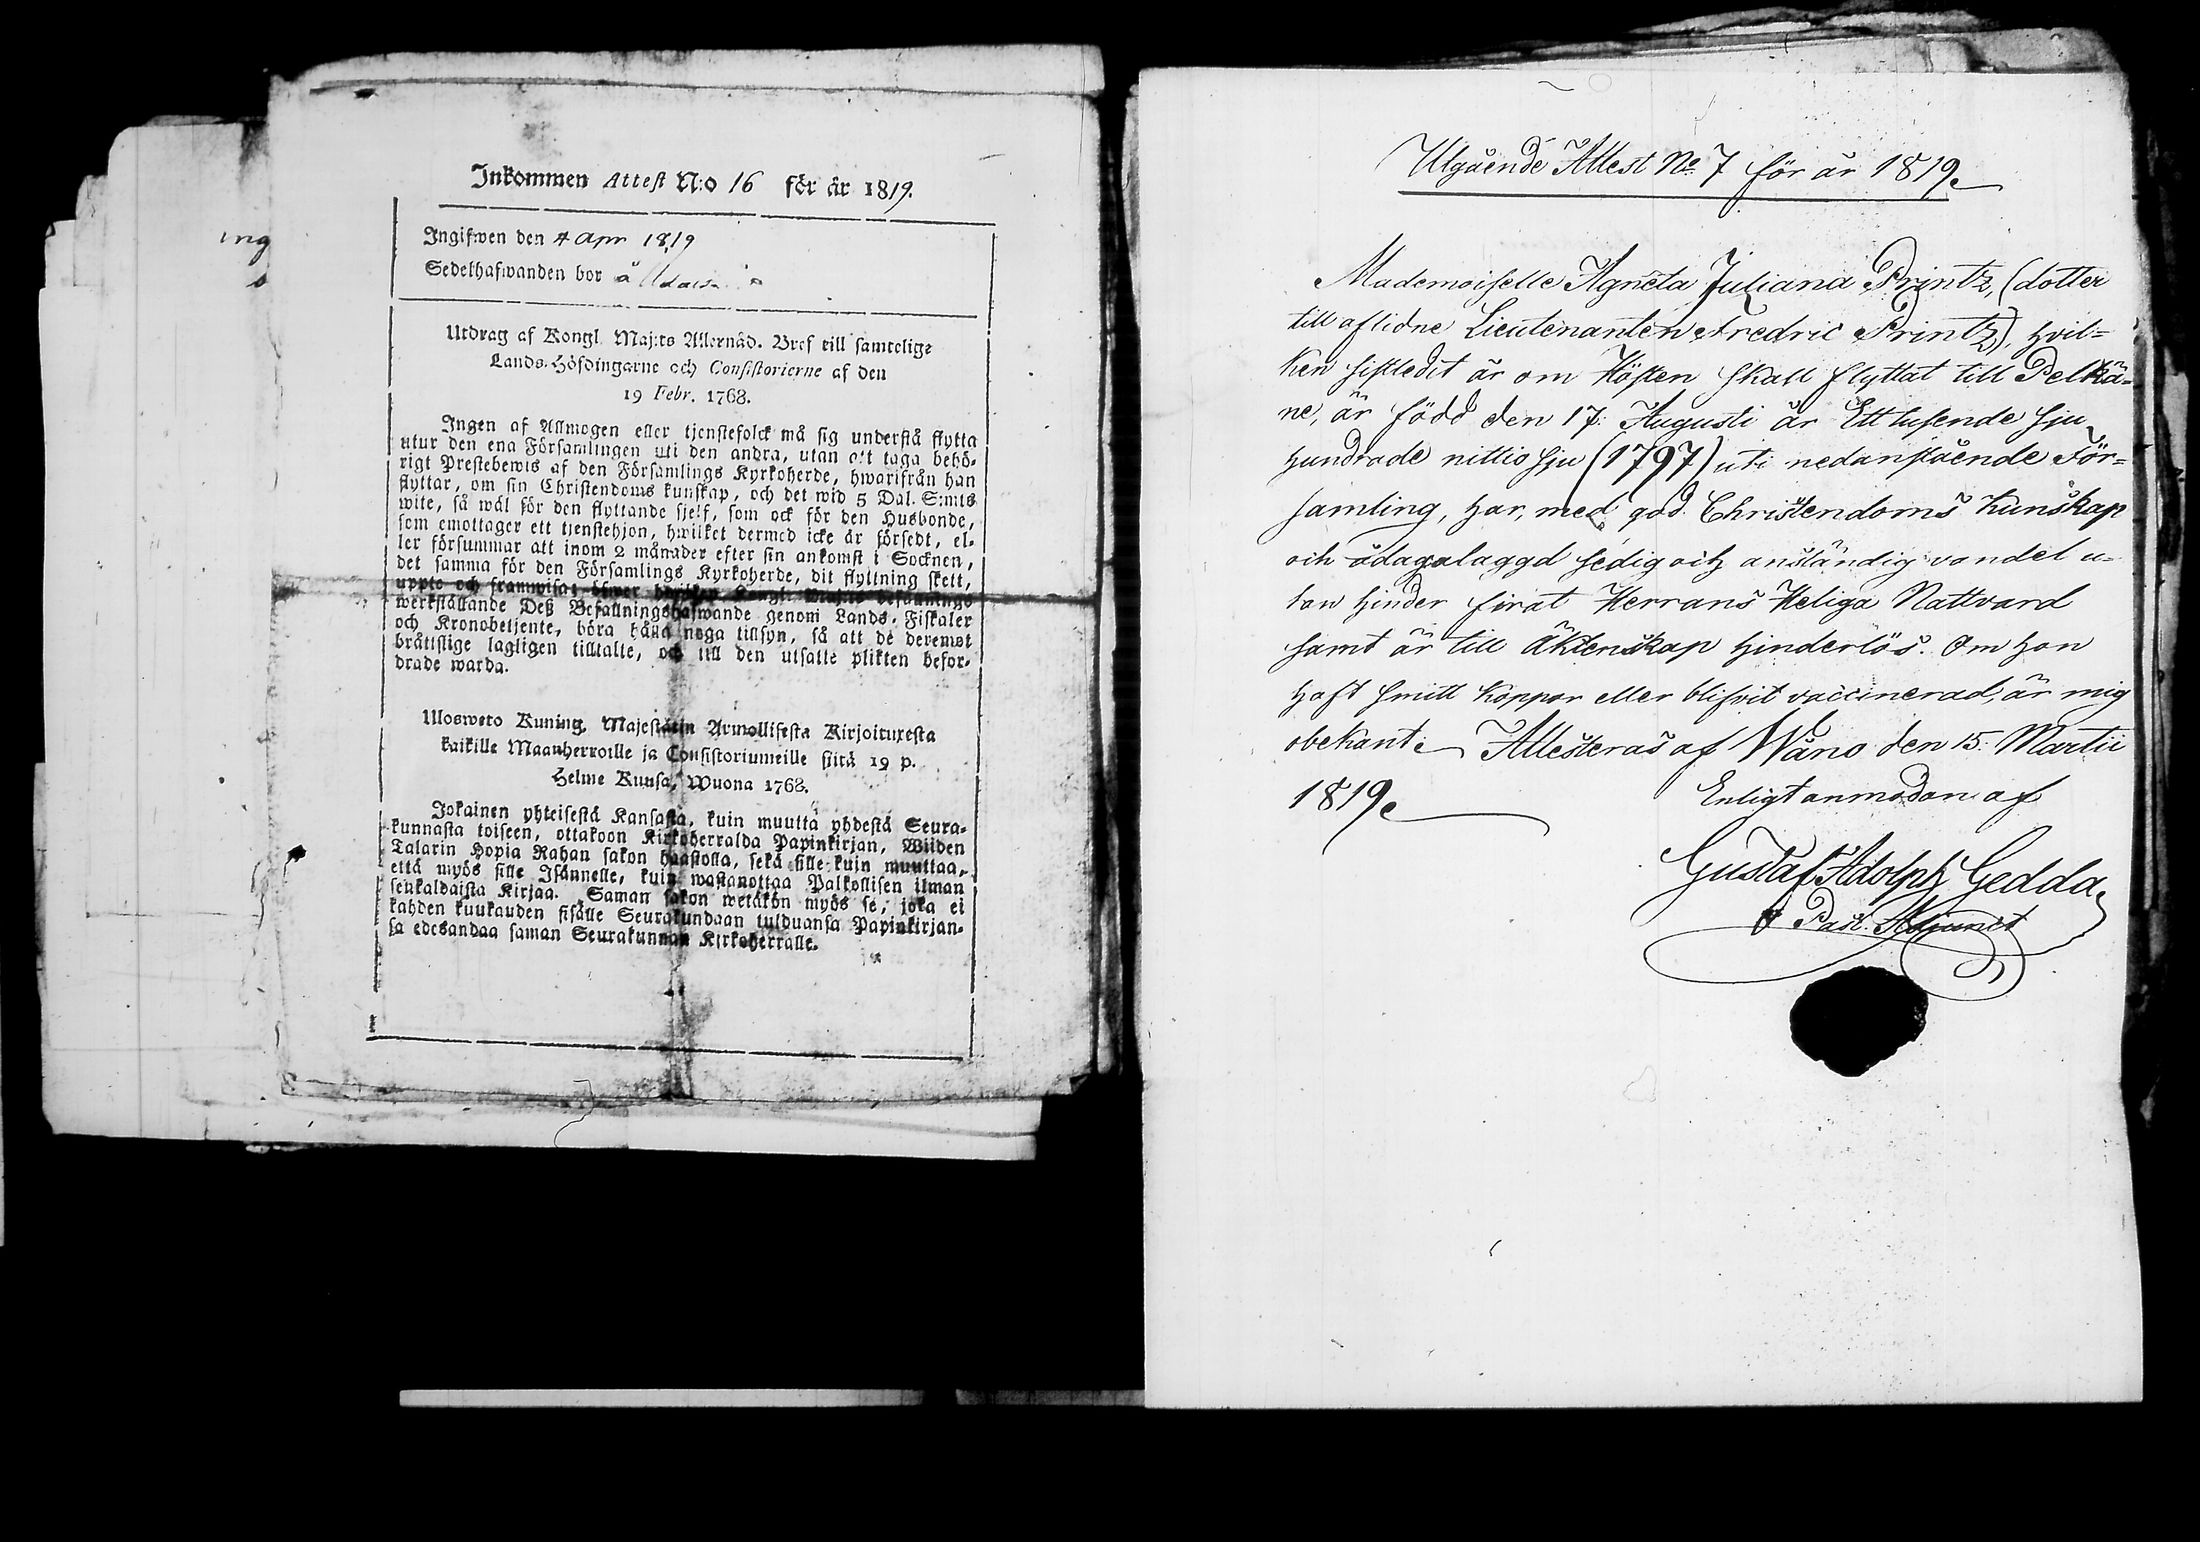 ing
Inkommen Attest N:o 16 för år 1819.
Ingifwen den 4 Apr 1819
Sedelhafwanden bor å
Utdrag af Kongl. Maj:ts Allernåd. Bref till samtelige
Lands-Höfdingarne och Consistorierne af den
19 Febr. 1768.
Ingen af Allmogen eller tjenstefolck må sig understå flytta
utur den ena Församlingen uti den andra, utan att taga behö-
rigt Prestebewis af den Församlings Kyrkoherde, hwarifrån han
flyttar, om sin Christendoms kunskap, och det wid 5 Dal. S:mts
wite, så wäl för den flyttande sjelf, som ock för den Husbonde,
som emottager ett tjenstehjon, hwilket dermed icke är försedt, el-
ler försummar att inom 2 månader efter sin ankomst i Socknen,
det samma för den Församlings Kyrkoherde, dit flyttning skett,
uppte och framwisa; öfwer hwilken Kongl. Maj:ts befallnings
werkställande Deß Befallningshafwande genom Lands-Fiskaler
och Kronobetjente, böra hålla noga tillsyn, så att de deremot
bråttslige lagligen tilltalte, och till den utsatte plikten befor-
drade warda.
Ulosweto Kuning. Majestätin Armollisesta Kirjoituxesta
kaikille Maanherroille ja Consistoriumeille siitä 19 p.
Helme Kuusa, Wuona 1768.
Jokainen yhteisestä Kansasta, kuin muuttä yhdestä Seura-
kunnasta toiseen, ottakoon Kirkoherralda Papinkirjan, Wiiden
Talarin Hopia Rahan sakon haastolla, sekä sille kuin muuttaa,
että myös sille Isännelle, kuin wastanottaa Palkollisen ilman
senkaldaista Kirjaa. Saman sakon wetäkön myös se, joka ei
kahden kuukauden sisälle Seurakundaan tulduansa Papinkirjan-
sa edesandaa saman Seurakunnan Kirkoherralle.
Utgående Attest No 7 för år 1819.
Mademoiselle Agneta Juliana Printz, (dotter
till aflidne Lieutenanten Fredric Printz), hvil-
ken sistledit år om Hösten skall flyttat till Pelkä-
ne, är född den 17. Augusti år Ett tusende sju
hundrade nittio sju (1797) uti nedanstående För-
samling, har, med god Christendoms Kunskap
och ådagalaggd sedig och anständig vandel u-
tan hinder firat Herrans Heliga Nattvard
samt är till äktenskap hinderlös. Om hon
haft smitt Koppor eller blifvit vaccinerad, är mig
obekant. Attesteras af Wåno den 15. Martii
1819.
Enligt anmodan af
Gustaf Adolph Gedda
Past. Adjunct